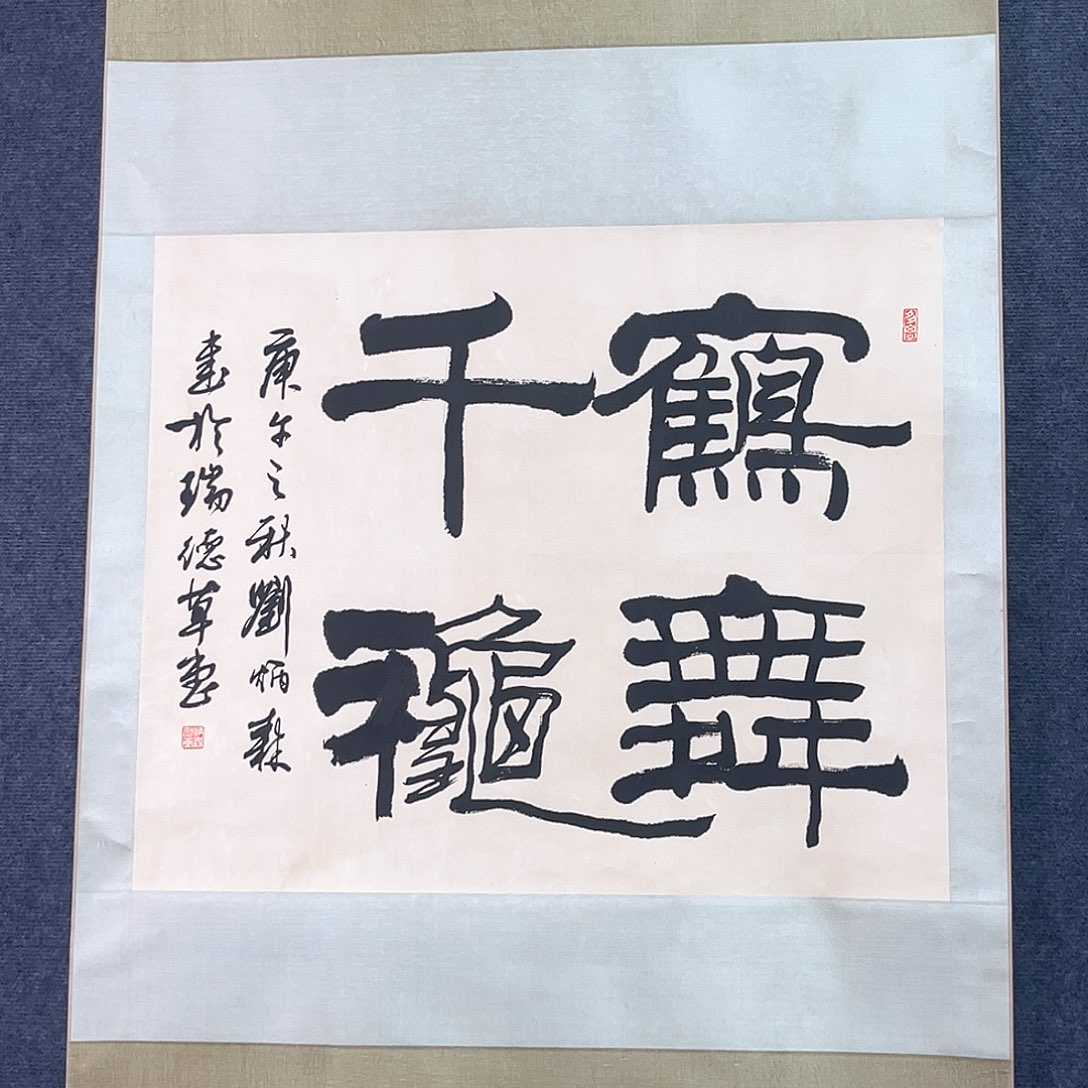 鶴舞
千龝
庚午之秋劉炳森
書於瑞德草堂